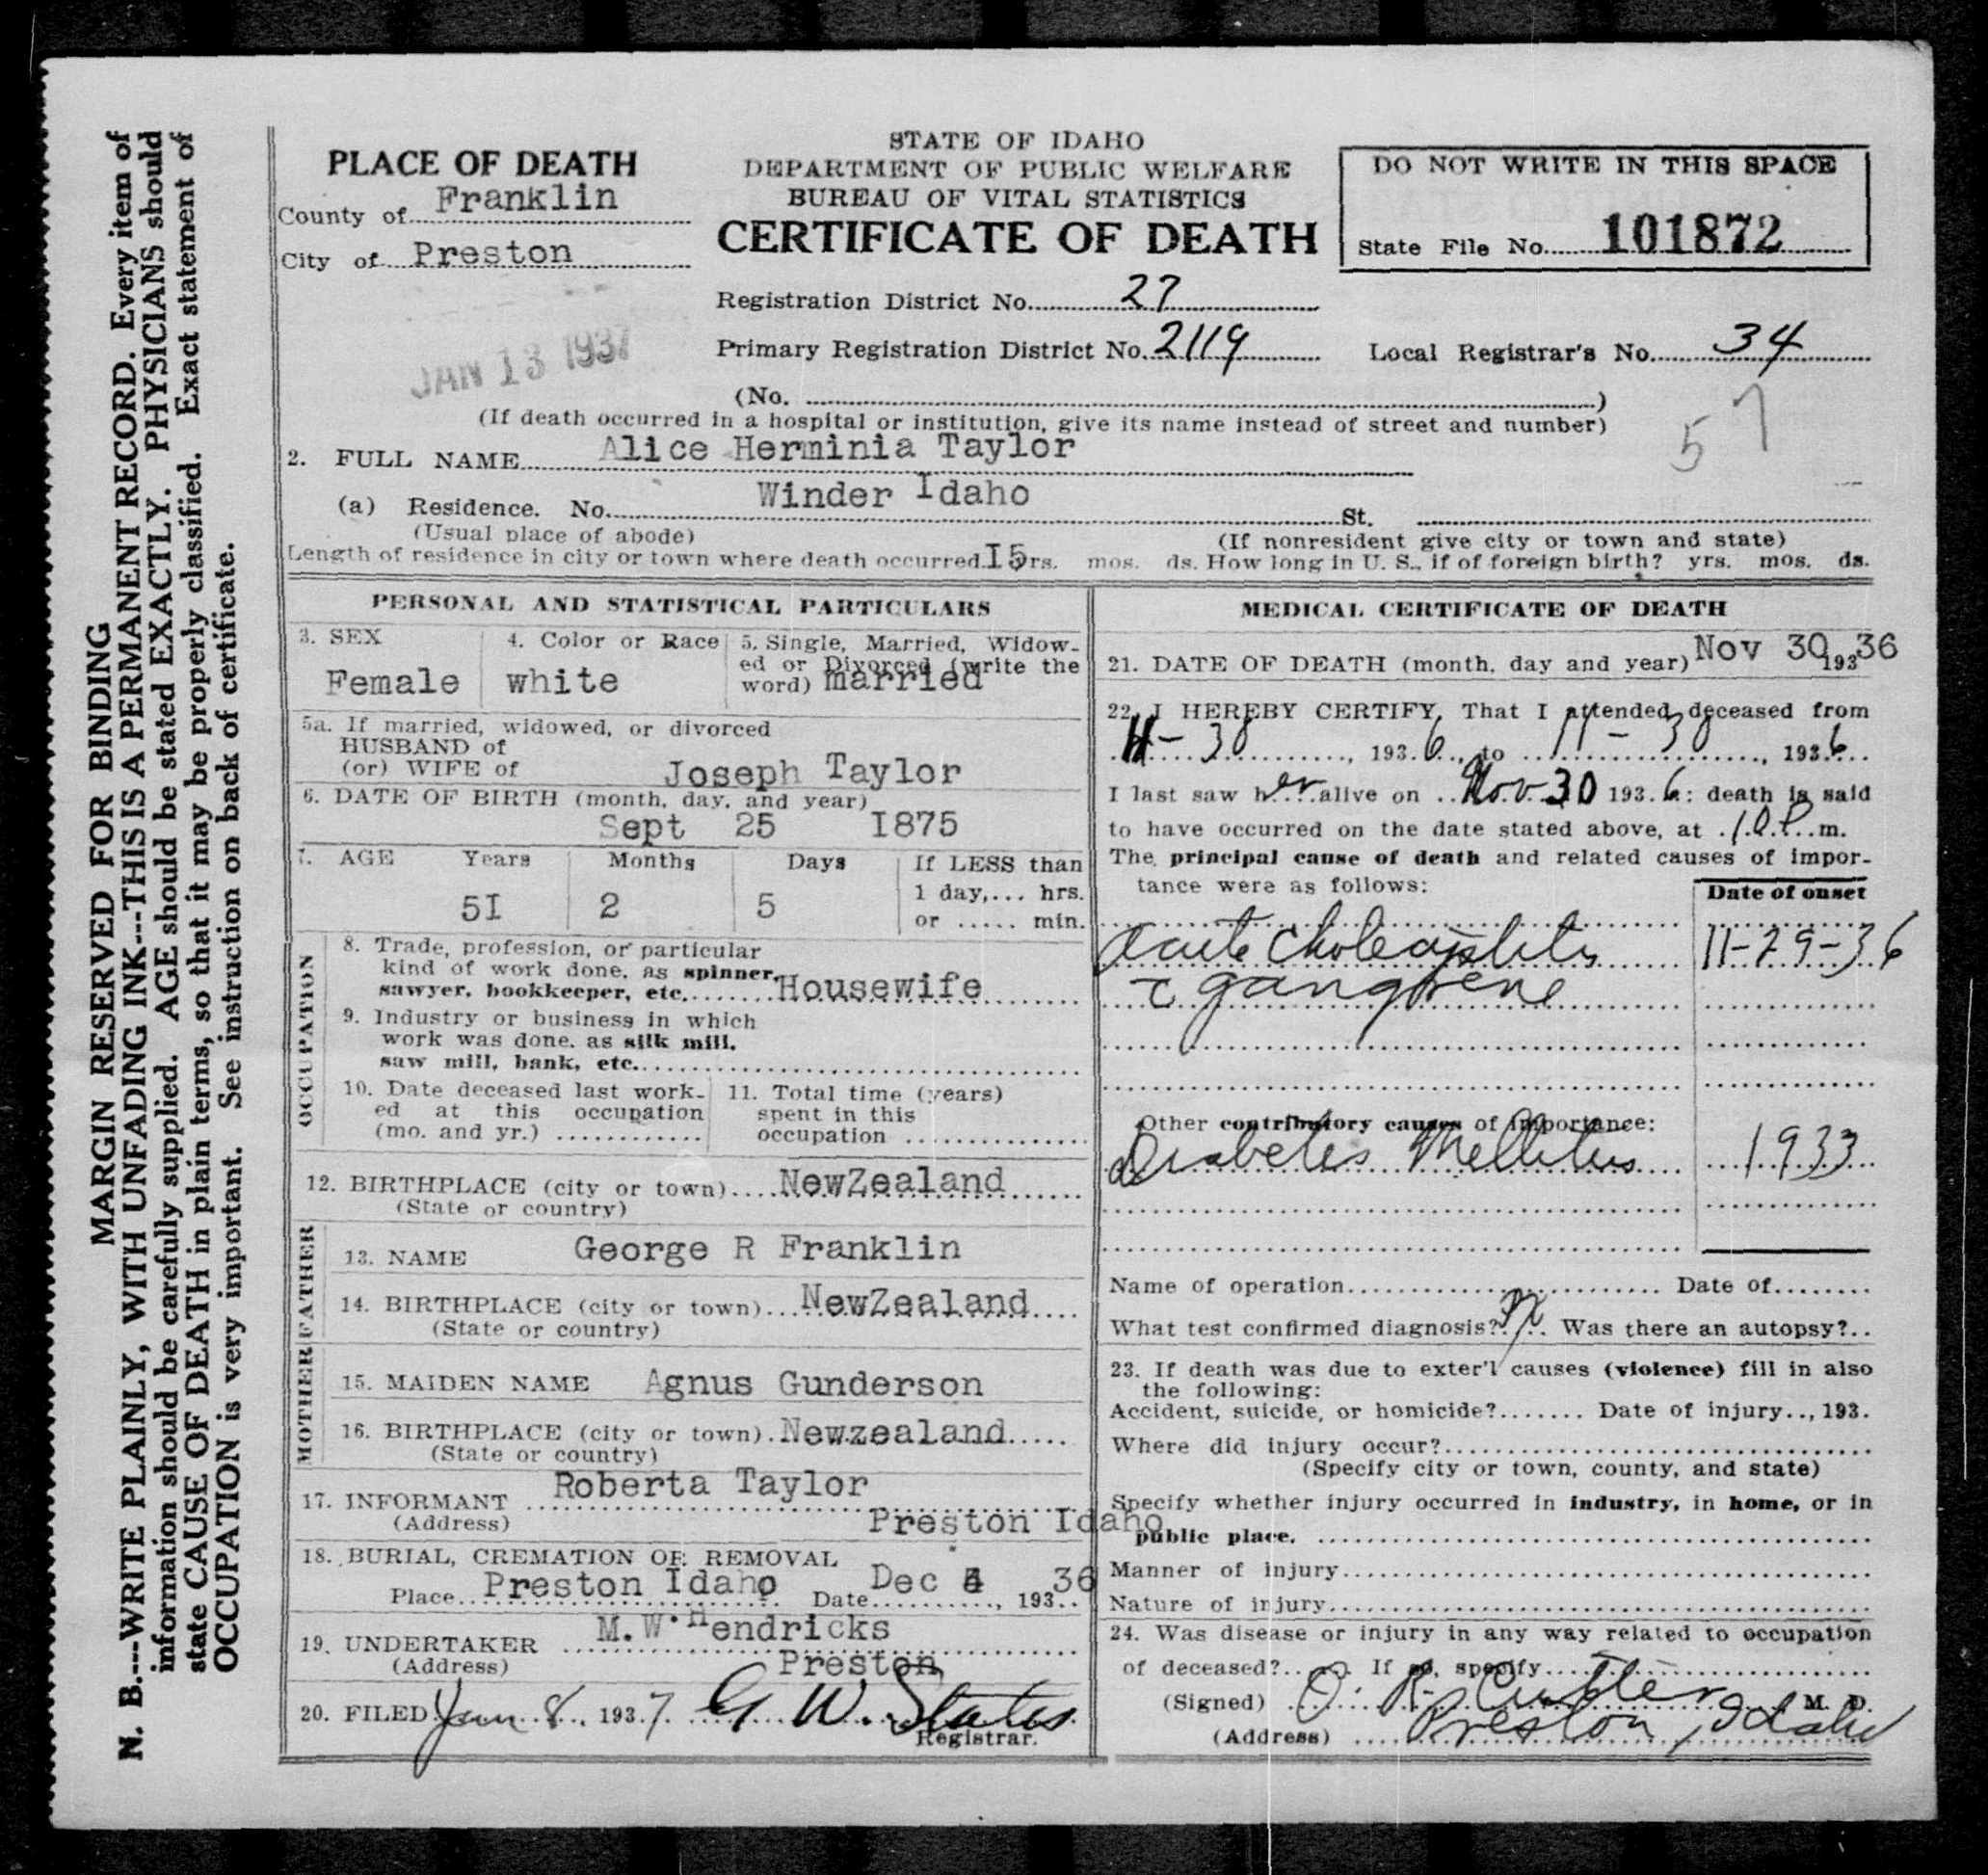 MARGIN RESERVED FOR BINDING
N. B.---WRITE PLAINLY, WITH UNFADING INK---THIS IS A PERMANENT RECORD. Every item of
information should be carefully supplied. AGE should be stated EXACTLY. PHYSICIANS should
state CAUSE OF DEATH in plain terms, so that it may be properly classified. Exact statement of
OCCUPATION is very important. See instruction on back of certificate.
PLACE OF DEATH
County of Franklin
City of Preston
JAN 13 1937
STATE OF IDAHO
DEPARTMENT OF PUBLIC WELFARE
BUREAU OF VITAL STATISTICS
CERTIFICATE OF DEATH
DO NOT WRITE IN THIS SPACE
State File No. 101872
Registration District No. 27
Primary Registration District No. 2119 Local Registrar's No. 34
(No. )
(If death occurred in a hospital or institution, give its name instead of street and number)
57
2. FULL NAME Alice Herminia Taylor
(a) Residence. No. Winder Idaho St.
(Usual place of abode) (If nonresident give city or town and state)
Length of residence in city or town where death occurred I5rs. mos. ds. How long in U. S., if of foreign birth? yrs. mos. ds.
PERSONAL AND STATISTICAL PARTICULARS
3. SEX
Female
4. Color or Race
white
5. Single, Married, Widow-
ed or Divorced (write the
word) married
5a. If married, widowed, or divorced
HUSBAND of
(or) WIFE of Joseph Taylor
6. DATE OF BIRTH (month, day, and year)
Sept 25 I875
7. AGE Years Months Days If LESS than
1 day,... hrs.
or ..... min.
5I 2 5
OCCUPATION
8. Trade, profession, or particular
kind of work done, as spinner,
sawyer, bookkeeper, etc. Housewife
9. Industry or business in which
work was done, as silk mill,
saw mill, bank, etc.
10. Date deceased last work-
ed at this occupation
(mo. and yr.)
11. Total time (years)
spent in this
occupation
12. BIRTHPLACE (city or town) NewZealand
(State or country)
FATHER
13. NAME George R Franklin
14. BIRTHPLACE (city or town) NewZealand
(State or country)
MOTHER
15. MAIDEN NAME Agnus Gunderson
16. BIRTHPLACE (city or town) Newzealand
(State or country)
17. INFORMANT Roberta Taylor
(Address) Preston Idaho
18. BURIAL, CREMATION OR REMOVAL
Place Preston Idaho Date Dec 4, 193 36
19. UNDERTAKER M.W.Hendricks
(Address) Preston
20. FILED Jan 8, 1937. G W. States
Registrar.
MEDICAL CERTIFICATE OF DEATH
21. DATE OF DEATH (month, day and year) Nov 30, 193 36
22. I HEREBY CERTIFY, That I attended deceased from
11-30, 1936, to 11-30, 1936
I last saw her alive on Nov 30 1936: death is said
to have occurred on the date stated above, at 10P.m.
The principal cause of death and related causes of impor-
tance were as follows:
Date of onset
Acute Cholecystitis 11-29-36
c gangrene
Other contributory causes of importance:
Diabetes Mellitus 1933
Name of operation Date of
What test confirmed diagnosis? Was there an autopsy?
23. If death was due to exter'l causes (violence) fill in also
the following:
Accident, suicide, or homicide? Date of injury.., 193.
Where did injury occur?
(Specify city or town, county, and state)
Specify whether injury occurred in industry, in home, or in
public place.
Manner of injury
Nature of injury
24. Was disease or injury in any way related to occupation
of deceased? If so, specify
(Signed) O. R. Cutler M. D.
(Address) Preston, Idaho